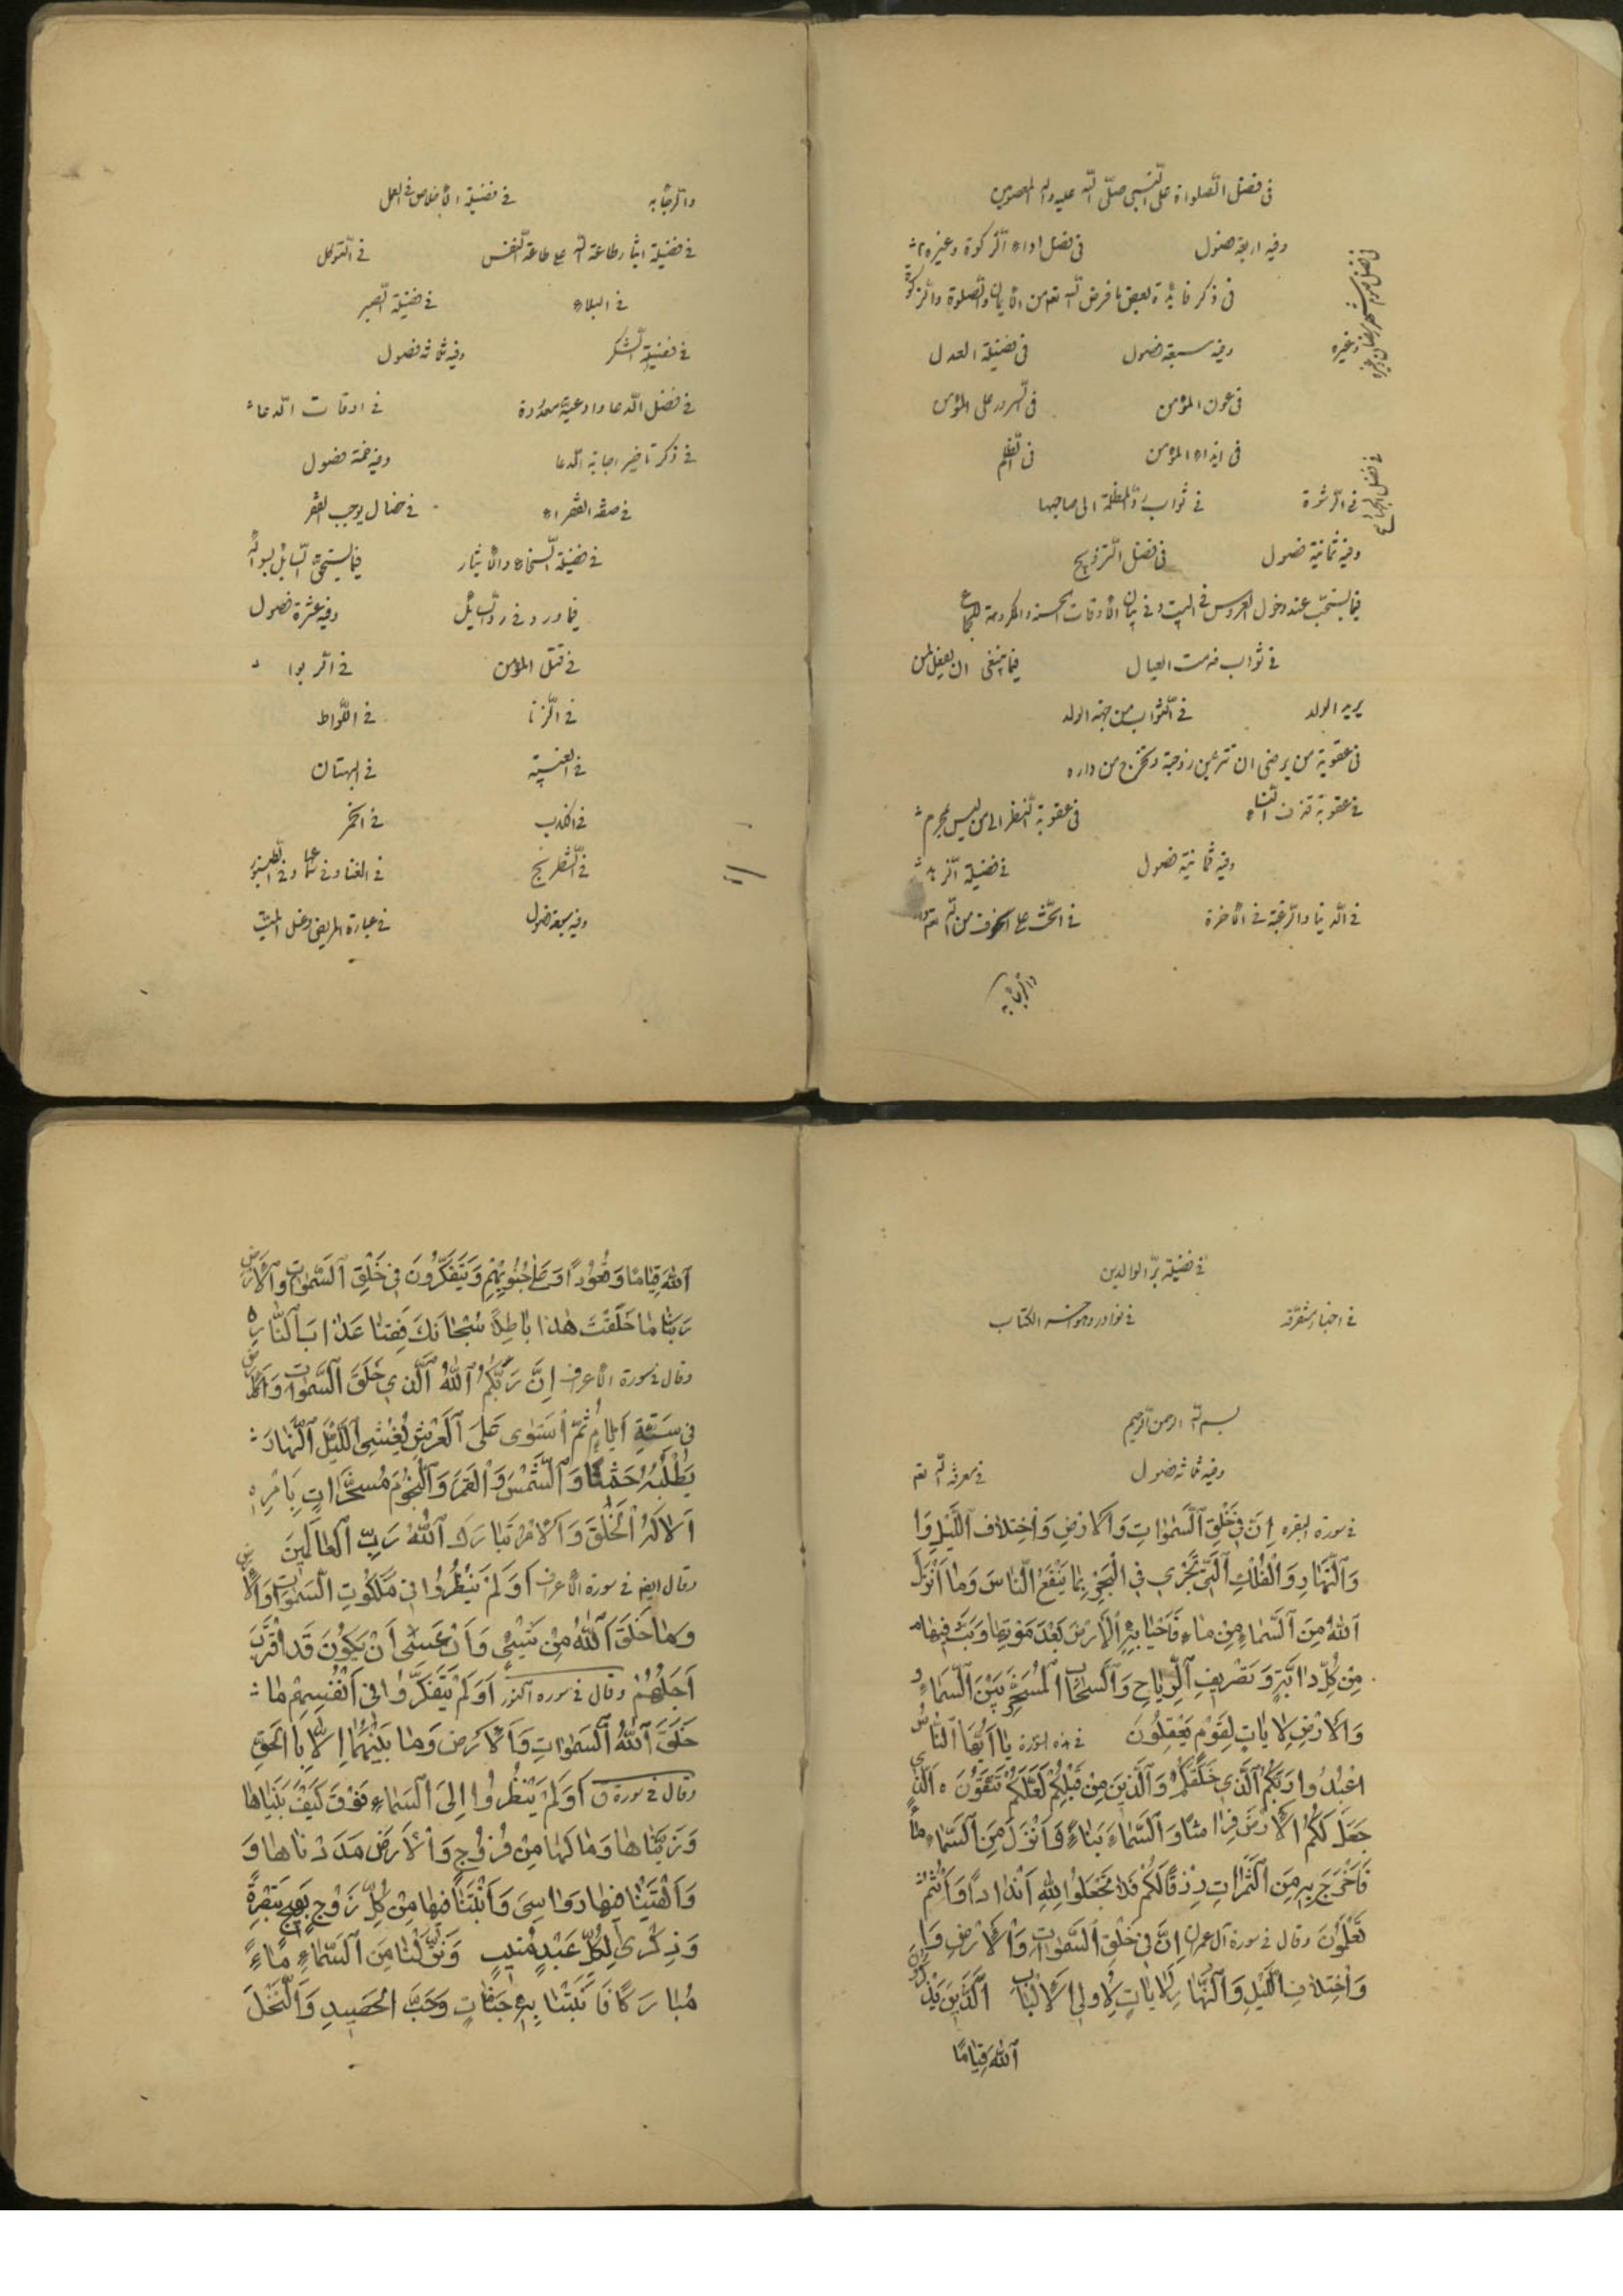 في فضل الصلواة على النبي صلّى اللّه عليه واله المعصومين
وفيه اربعة فصول في فضل اداء الزكوة وغيره
في ذكر فايدة بعض ما فرض اللّه تع من الايمان والصلوة والزكوة
وفيه سبعة فصول في فضيلة العدل
في عون المؤمن في السرور على المؤمن
في ايذاء المؤمن في الظلم
في الرشوة في ثواب ردّ المظلمة الى صاحبها
في فضل الجهاد
وفيه ثمانية فصول في فضل التزويج
فيما يستحبّ عند دخول العروس في البيت وفي بيان الاوقات الحسنة والمكروهة للجماع
في ثواب خدمت العيال فيما ينبغي ان يفعل لمن
يريد الولد في الثواب من جهة الولد
في عقوبة من يرضى ان تتزين زوجته وتخرج من داره
في عقوبة قذف النساء في عقوبة النظر الى من ليس بمحرم
وفيه ثمانية فصول في فضيلة الزهد
في الدنيا والرغبة في الآخرة في الحثّ على الخوف من اللّه تع
والرجا به
والرجا به في فضيلة الاخلاص في العمل
في فضيلة ايثار طاعة اللّه على طاعة النفس في التوكل
في البلاء في فضيلة الصبر
في فضيلة الشكر وفيه ثلاثه فصول
في فضل الدعا وادعية معدودة في اوقات الدعاء
في ذكر تاخير اجابة الدعا وفيه خمسة فصول
في صفة الفقراء في خصال يوجب الفقر
في فضيلة السخاء والايثار فيما يستحق السايل بسؤاله
فيما ورد في ردّ السايل وفيه عشرة فصول
في قتل المؤمن في الربوا
في الزنا في اللواط
في الغيبة في البهتان
في الكذب في الخمر
في الشطرنج في الغنا وفي سماعها وفي الطنبور
وفيه سبعة فصول في عيادة المريض وغسل الميّت
في فضيلة برّ الوالدين
في اخبار متفرقة في نوادر وهو اخر الكتاب
بسم اللّه الرحمن الرحيم
وفيه ثلاثه فصول في معرفة اللّه تع
في سورة البقره اِنَّ في خَلْقِ السَّمٰوٰاتِ وَالْاَرْضِ وَاخْتِلافِ اللَّيْلِ وَا
وَالنَّهٰارِ وَالْفُلْكِ الَّتي تَجْري فِي الْبَحْرِ بِمٰا يَنْفَعُ النّاسَ وَمٰا اَنْزَلَ
اللّٰهُ مِنَ السَّمٰاءِ مِنْ مٰاءٍ فَاَحْيٰا بِهِ الْاَرْضَ بَعْدَ مَوْتِهٰا وَبَثَّ فيهٰا
مِنْ كُلِّ دٰابَّةٍ وَتَصْريفِ الرِّيٰاحِ وَالسَّحٰابِ الْمُسَخَّرِ بَيْنَ السَّمٰاءِ و
وَالْاَرْضِ لَاٰيٰاتٍ لِقَوْمٍ يَعْقِلُونَ في هذه السورة يٰا اَيُّهَا النّٰاسُ
اعْبُدُوا رَبَّكُمُ الَّذي خَلَقَكُمْ وَالَّذينَ مِنْ قَبْلِكُمْ لَعَلَّكُمْ تَتَّقُونَ ه الَّذي
جَعَلَ لَكُمُ الْاَرْضَ فِرٰاشًا وَالسَّمٰاءَ بِنٰاءً وَاَنْزَلَ مِنَ السَّمٰاءِ مٰاءً
فَاَخْرَجَ بِهِ مِنَ الثَّمَرٰاتِ رِزْقًا لَكُمْ فَلا تَجْعَلُوا لِلّٰهِ اَنْدٰادًا وَاَنْتُمْ
تَعْلَمُونَ وقال في سورة آل عمران اِنَّ في خَلْقِ السَّمٰوٰاتِ وَالْاَرْضِ وَا
وَاخْتِلافِ اللَّيْلِ وَالنَّهٰارِ لَاٰيٰاتٍ لِاُولِي الْاَلْبٰابِ الَّذينَ يَذْكُرُونَ
اللّٰهَ قِيٰامًا
اللّٰهَ قِيٰامًا وَقُعُودًا وَعَلٰى جُنُوبِهِمْ وَيَتَفَكَّرُونَ في خَلْقِ السَّمٰوٰاتِ وَالْاَرْضِ
رَبَّنٰا مٰا خَلَقْتَ هٰذٰا بٰاطِلًا سُبْحٰانَكَ فَقِنٰا عَذٰابَ النّٰارِ ه
وقال في سورة الاعراف اِنَّ رَبَّكُمُ اللّٰهُ الَّذي خَلَقَ السَّمٰوٰاتِ وَالْاَرْضَ
في سِتَّةِ اَيّٰامٍ ثُمَّ اسْتَوٰى عَلَى الْعَرْشِ يُغْشِي اللَّيْلَ النَّهٰارَ
يَطْلُبُهُ حَثيثًا وَالشَّمْسَ وَالْقَمَرَ وَالنُّجُومَ مُسَخَّرٰاتٍ بِاَمْرِه
اَلٰا لَهُ الْخَلْقُ وَالْاَمْرُ تَبٰارَكَ اللّٰهُ رَبُّ الْعٰالَمينَ
وقال ايضا في سورة الاعراف اَوَلَمْ يَنْظُرُوا في مَلَكُوتِ السَّمٰوٰاتِ وَالْاَرْضِ
وَمٰا خَلَقَ اللّٰهُ مِنْ شَيْءٍ وَاَنْ عَسٰى اَنْ يَكُونَ قَدِ اقْتَرَبَ
اَجَلُهُمْ وقال في سوره اَوَلَمْ يَتَفَكَّرُوا في اَنْفُسِهِمْ مٰا
خَلَقَ اللّٰهُ السَّمٰوٰاتِ وَالْاَرْضَ وَمٰا بَيْنَهُمٰا اِلّا بِالْحَقِّ
وقال في سورة ق اَوَلَمْ يَنْظُرُوا اِلَى السَّمٰاءِ فَوْقَ كَيْفَ بَنَيْنٰاهٰا
وَزَيَّنّٰاهٰا وَمٰا لَهٰا مِنْ فُرُوجٍ وَالْاَرْضَ مَدَدْنٰاهٰا وَ
وَاَلْقَيْنٰا فيهٰا رَوٰاسِيَ وَاَنْبَتْنٰا فيهٰا مِنْ كُلِّ زَوْجٍ بَهيجٍ تَبْصِرَةً
وَذِكْرٰى لِكُلِّ عَبْدٍ مُنيبٍ وَنَزَّلْنٰا مِنَ السَّمٰاءِ مٰاءً
مُبٰارَكًا فَاَنْبَتْنٰا بِه جَنّٰاتٍ وَحَبَّ الْحَصيدِ وَالنَّخْلَ